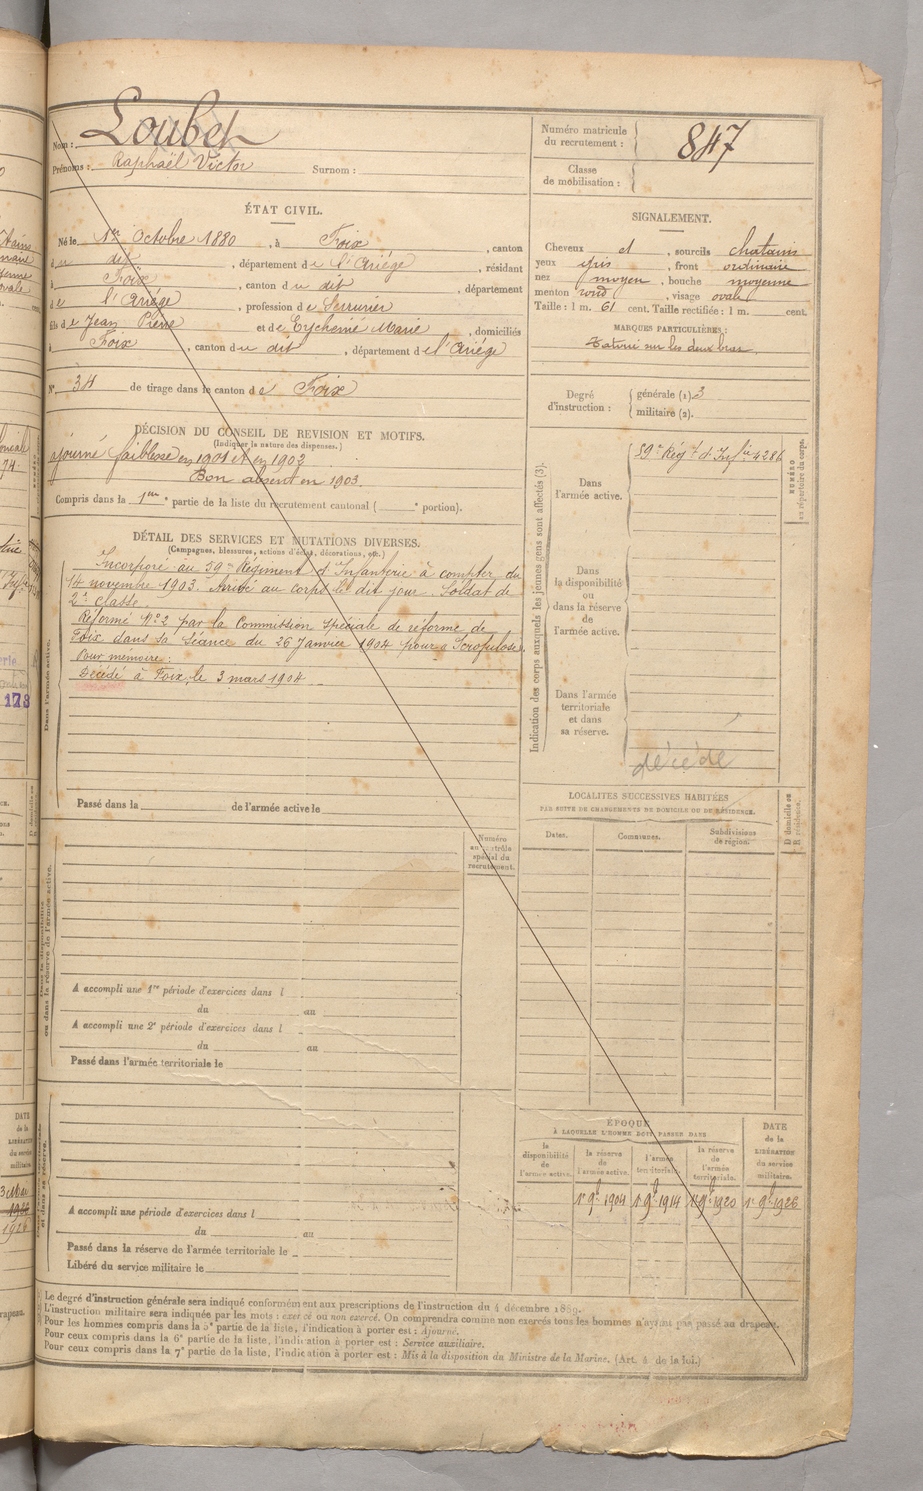 Nom : Loubet
Prénoms : Raphaël Victor Surnom :
Numéro matricule du recrutement : 847
Classe de mobilisation :
ÉTAT CIVIL.
Né le 1er Octobre 1880, à Foix, canton
du dit, département de l'Ariège, résidant
à Foix, canton du dit, département
de l'Ariège, profession de Serrurier
fils de Jean Pierre et de Eychenié Marie, domiciliés
à Foix, canton du dit, département de l'Ariège
N° 34 de tirage dans le canton de Foix
SIGNALEMENT.
Cheveux d, sourcils chatains
yeux gris, front ordinaire
nez moyen, bouche moyenne
menton rond, visage ovale
Taille : 1 m. 61 cent. Taille rectifiée : 1 m. cent.
MARQUES PARTICULIÈRES :
Tatoué sur les deux bras.
Degré d'instruction : générale (1) 3
militaire (2).
DÉCISION DU CONSEIL DE REVISION ET MOTIFS.
(Indiquer la nature des dispenses.)
ajourné faiblesse en 1901 et en 1902
Bon absent en 1903.
Compris dans la 1ère partie de la liste du recrutement cantonal ( e portion).
DÉTAIL DES SERVICES ET MUTATIONS DIVERSES.
(Campagnes, blessures, actions d'éclat, décorations, etc.)
Incorporé au 59me Régiment d'Infanterie à compter du
14 novembre 1903. Arrivé au corps le dit jour. Soldat de
2e classe.
Réformé N°2 par la Commission Spéciale de réforme de
Foix dans sa Séance du 26 Janvier 1904 pour "Scrofulose".
Pour mémoire :
Décédé à Foix, le 3 mars 1904
Dans l'armée active.
Passé dans la de l'armée active le
Indication des corps auxquels les jeunes gens sont affectés (3).
Dans l'armée active. 59e Régt d'Infie 4286
NUMÉRO au répertoire du corps.
Dans la disponibilité ou dans la réserve de l'armée active.
Dans l'armée territoriale et dans sa réserve.
décédé
LOCALITÉS SUCCESSIVES HABITÉES
PAR SUITE DE CHANGEMENTS DE DOMICILE OU DE RÉSIDENCE.
Dates. Communes. Subdivisions de région. D domicile ou R résidence.
Numéro au contrôle spécial du recrutement.
Dans la disponibilité ou dans la réserve de l'armée active.
A accompli une 1re période d'exercices dans l
du au
A accompli une 2e période d'exercices dans l
du au
Passé dans l'armée territoriale le
A accompli une période d'exercices dans l
du au
Passé dans la réserve de l'armée territoriale le
Libéré du service militaire le
ÉPOQUE
À LAQUELLE L'HOMME DOIT PASSER DANS
la disponibilité de l'armée active. la réserve de l'armée active. l'armée territoriale. la réserve de l'armée territoriale.
DATE de la LIBÉRATION du service militaire.
1er 9bre 1904 1er 9bre 1914 1er 9bre 1920 1er 9bre 1926
Le degré d'instruction générale sera indiqué conformément aux prescriptions de l'instruction du 4 décembre 1889.
L'instruction militaire sera indiquée par les mots : exercé ou non exercé. On comprendra comme non exercés tous les hommes n'ayant pas passé au drapeau.
Pour les hommes compris dans la 5e partie de la liste, l'indication à porter est : Ajourné.
Pour ceux compris dans la 6e partie de la liste, l'indication à porter est : Service auxiliaire.
Pour ceux compris dans la 7e partie de la liste, l'indication à porter est : Mis à la disposition du Ministre de la Marine. (Art. 4 de la loi.)